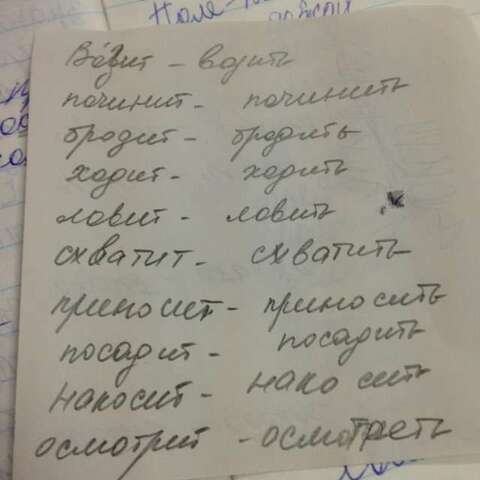 Поля-
Возит - возить
починит - починить
бродит - бродить
ходит - ходить
ловит - ловить
схватит - схватить
приносит - приносить
посадит - посадить
накосит - накосить
осмотрит - осмотреть